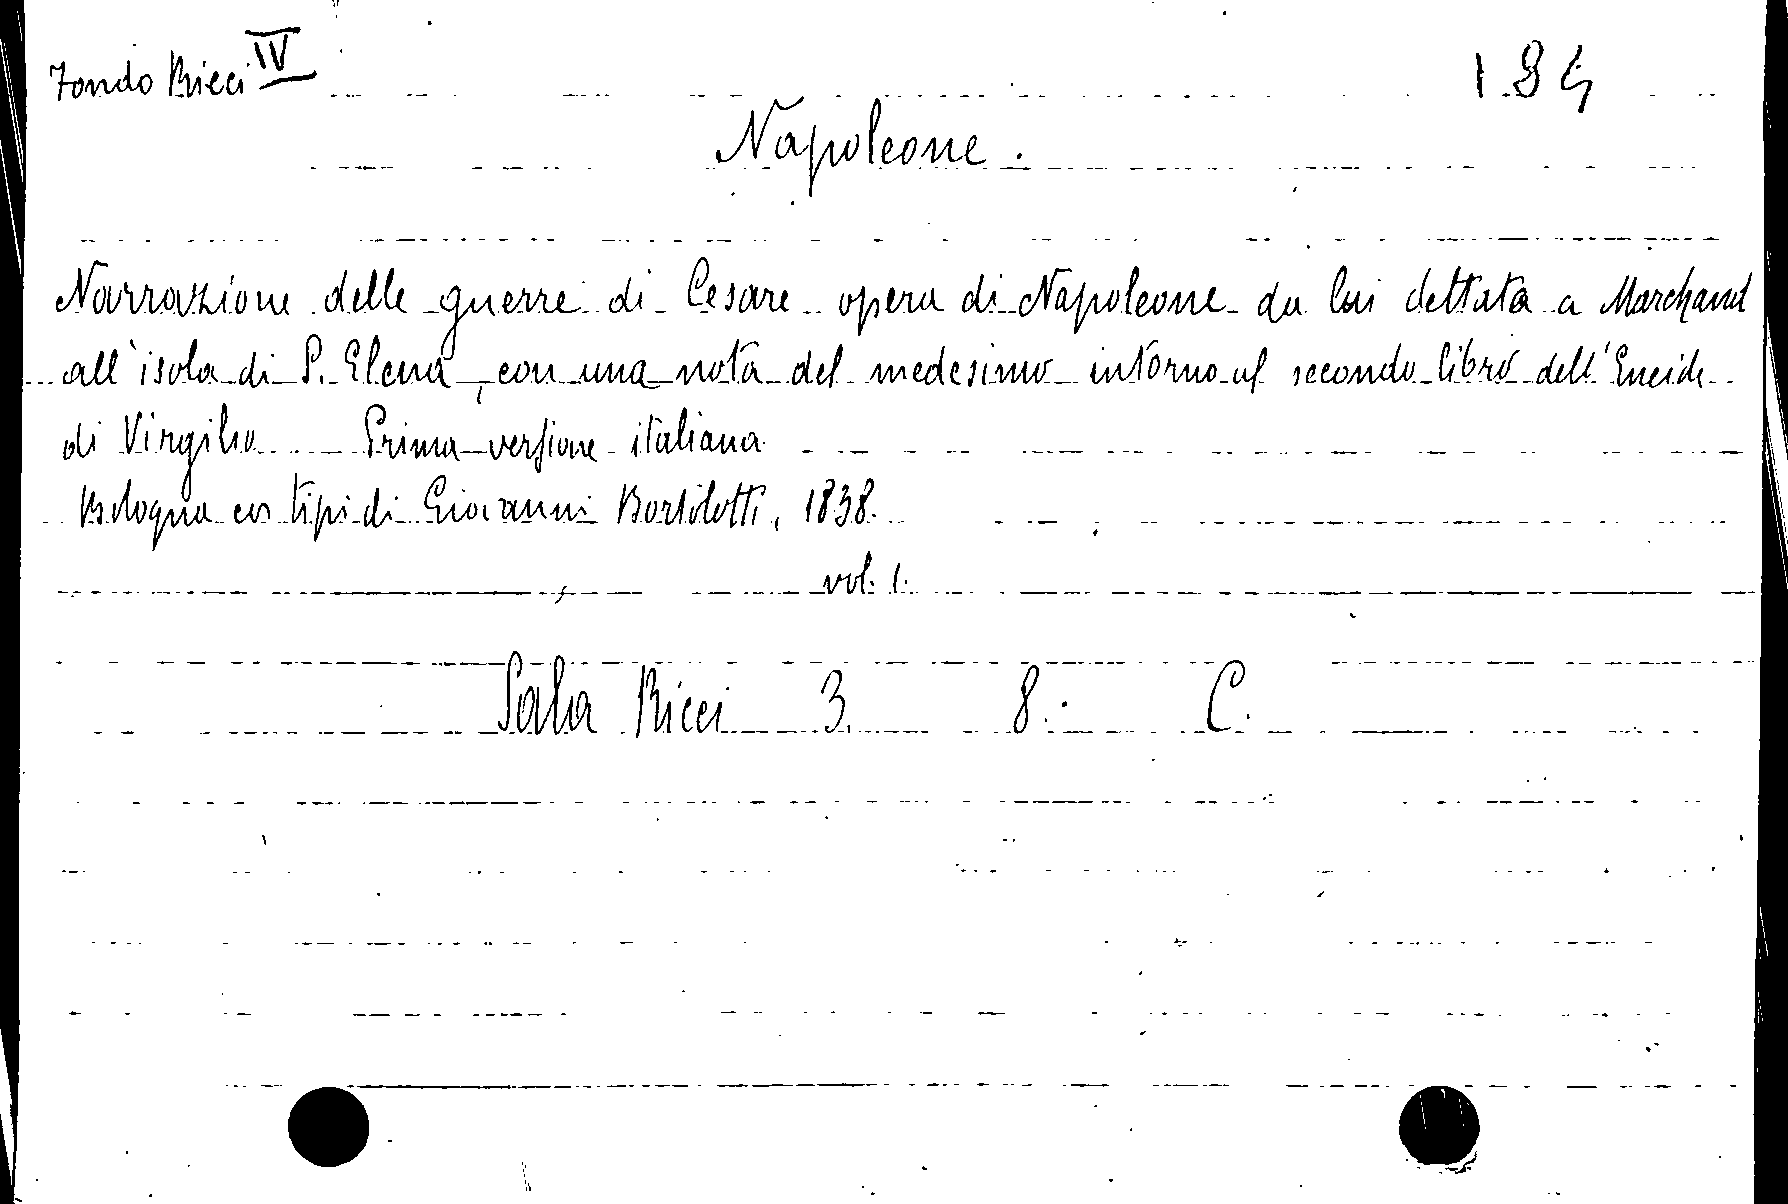 Fondo Ricci IV
184
Napoleone.
Narrazione delle guerre di Cesare opera di Napoleone da lui dettata a Marchand
all'isola di S. Elena, con una nota del medesimo intorno al secondo libro dell'Eneide
di Virgilio Prima versione italiana
Bologna coi tipi di Giovanni Bortolotti, 1838.
vol. 1.
Sala Ricci 3. 8. C.